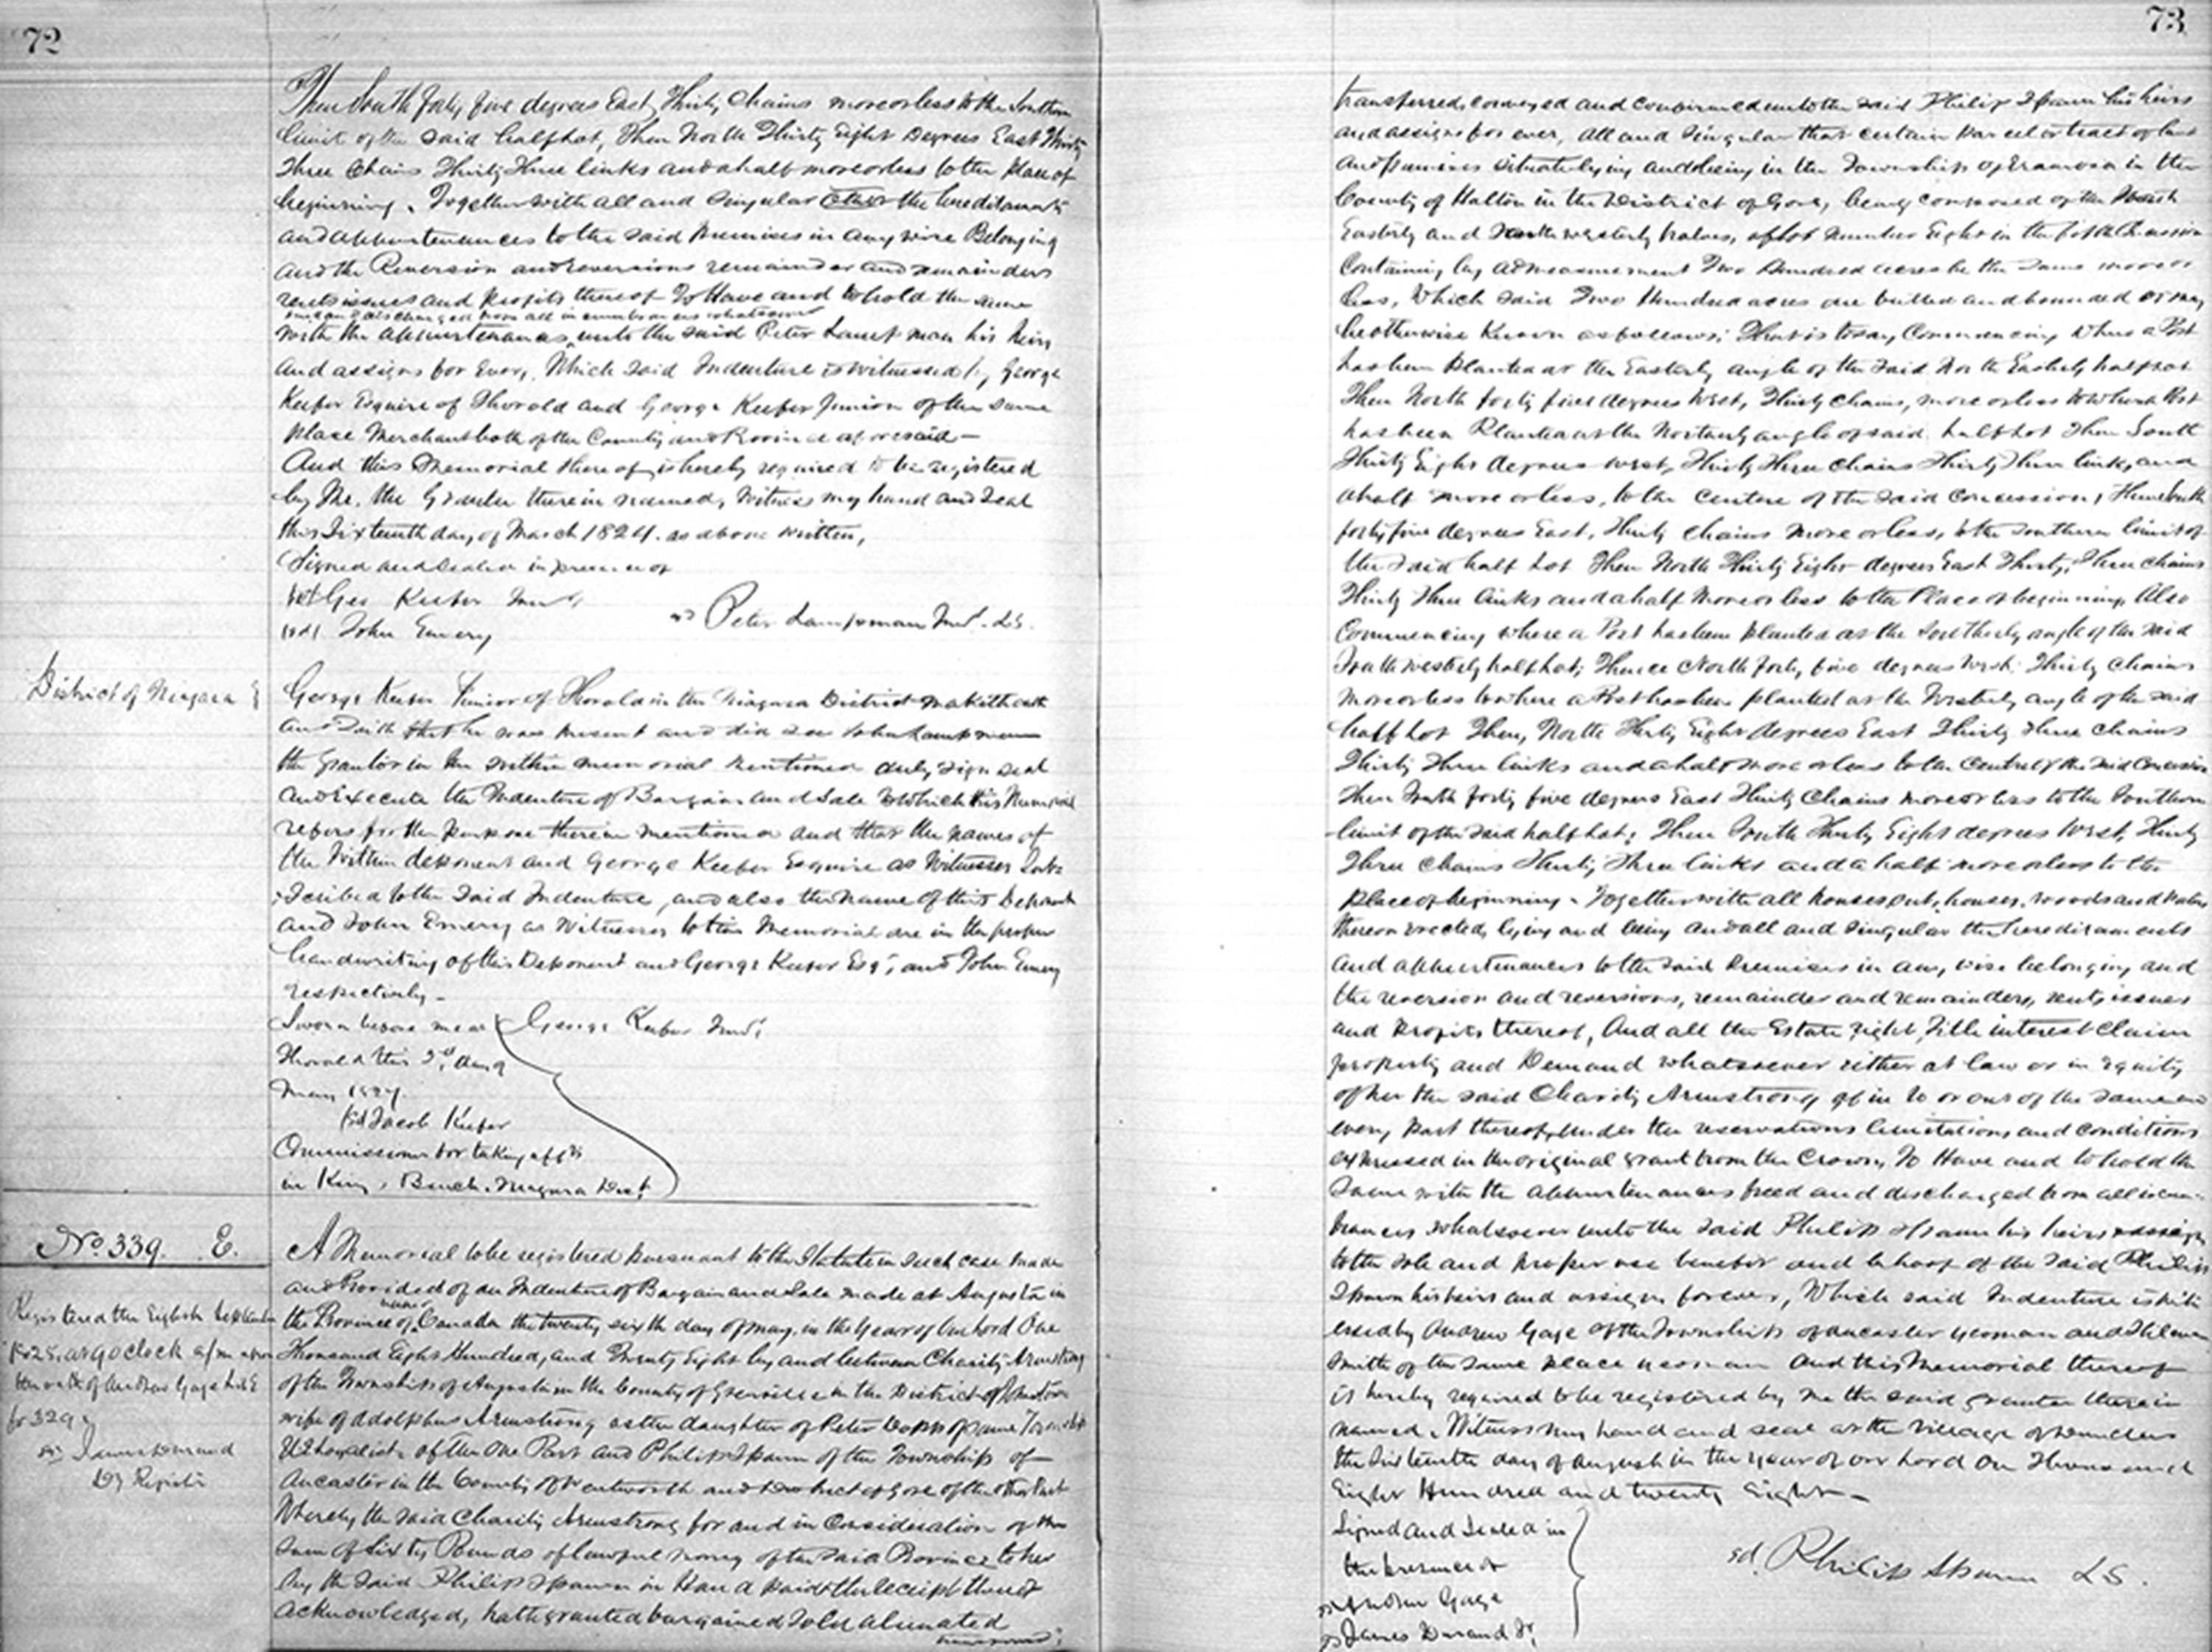 72
Then South forty five degrees East, Thirty Chains more or less to the Southern
limit of the said half Lot, Then North Thirty Eight Degrees East Thirty
Three Chains Thirty Three links and a half more or less to the Place of
beginning. Together with all and Singular other the hereditaments
and appurtenances to the said Premises in any wise Belonging
and the Reversion and reversions remainder and remainders
rents issues and profits thereof To Have and to hold the same
and discharged from all incumbrances whatsoever
with the appurtenances unto the said Peter Lampman his heirs
and assigns for Ever, Which said Indenture is witnessed by George
Keefer Esquire of Thorold and George Keefer Junior of the same
place Merchant both of the County and Province aforesaid —
And this Memorial thereof is hereby required to be registered
by Me, the Grantee therein named, Witness my hand and Seal
this Sixteenth day of March 1824. as above written,
Signed and Sealed in presence of
Geo Keefer Junr,
John Emery
Peter Lampman Junr. LS.
District of Niagara
George Keefer Junior of Thorold in the Niagara District maketh oath
and saith that he was present and did see John Lampman
the Grantor in the within memorial mentioned duly sign seal
and Execute the Indenture of Bargain and Sale to which this Memorial
refers for the purpose therein mentioned and that the names of
the Within deponent and George Keefer Esquire as Witnesses Sub-
scribed to the Said Indenture, and also the name of this Deponent
and John Emery as Witnesses to this Memorial are in the proper
handwriting of this Deponent and George Keefer Esqr, and John Emery
respectively —
Sworn before me at
Thorold this 3rd day of
May 1824.
Jacob Keefer
Commissioner for taking affts
in Kings Bench. Niagara Dist.
George Keefer Junr.
No 339. E.
Registered the Eighth September
1828, at 9 oclock a/m upon
the oath of Andrew Gage
fo 329
James Durand
Dy Registr
A Memorial to be registered pursuant to the Statute in Such case made
and Provided of an Indenture of Bargain and Sale made at Augusta in
the Province of Canada the twenty sixth day of May in the Year of Our Lord One
Thousand Eight Hundred, and Twenty Eight by and between Charity Armstrong
of the Township of Augusta in the County of Grenville in the District of Johnstown
wife of Adolphus Armstrong as the daughter of Peter of same Township
UE Loyalist of the One Part and Philip Spaun of the Township of
Ancaster in the County of Wentworth and District of Gore of the Other Part
Whereby the said Charity Armstrong for and in Consideration of the
Sum of Sixty Pounds of lawful money of the said Province to her
by the said Philip Spaun in Hand paid the receipt thereof
acknowledged, hath granted bargained Sold alienated
73
transferred, conveyed and confirmed unto the said Philip Spaun his heirs
and assigns for ever, all and Singular that certain Parcel or tract of land
and Premises Situate lying and being in the Township of Eramosa in the
County of Halton in the District of Gore, being composed of the North
Easterly and South westerly halves, of Lot Number Eight in the fifth Concession
Containing by admeasurement Two Hundred acres be the same more or
less, Which said Two Hundred acres are butted and bounded or may
be otherwise Known as follows: That is to say, Commencing Where a Post
has been Planted at the Easterly angle of the said North Easterly half Lot
Then North forty five degrees West, Thirty Chains, more or less to where a Post
has been Planted at the Northerly angle of said half Lot Then South
Thirty Eight degrees West, Thirty Three Chains Thirty Three links, and
a half more or less, to the Centre of the said Concession, Then South
forty five degrees East, Thirty Chains more or less, to the Southern limit of
the Said half Lot Then North Thirty Eight degrees East Thirty, Three Chains
Thirty Three links and a half more or less to the Place of beginning, Also
Commencing where a Post has been planted at the Southerly angle of the said
South westerly half Lot; Thence North forty five degrees West Thirty Chains
more or less to where a Post has been planted at the Westerly angle of the said
half Lot Then, North Thirty Eight degrees East Thirty Three Chains
Thirty Three links and a half more or less to the Centre of the said Concession
Then South forty five degrees East Thirty Chains more or less to the Southern
limit of the said half Lot; Then South Thirty Eight degrees West, Thirty
Three Chains Thirty Three links and a half more or less to the
Place of beginning. Together with all houses, out houses, woods and waters
thereon erected, lying and being and all and Singular the hereditaments
and appurtenances to the said Premises in any wise belonging and
the reversion and reversions, remainder and remainders, rents, issues
and Profits thereof, And all the Estate, right, Title interest Claim
property and Demand whatsoever either at law or in equity
of her the said Charity Armstrong of in to or out of the same and
every Part thereof, under the reservations limitations and conditions
expressed in the original grant from the Crown, To Have and to hold the
Same with the appurtenances freed and discharged from all incum-
brances whatsoever unto the said Philip Spaun his heirs assigns
to the sole and proper use benefit and behoof of the said Philip
Spaun his heirs and assigns forever, Which said Indenture is witn
essed by Andrew Gage of the Township of Ancaster yeoman and
Smith of the Same place yeoman And this Memorial thereof
is hereby required to be registered by me the said grantee therein
named. Witness my hand and seal at the village of Dundas
the Sixteenth day of August in the year of our Lord One Thousand
Eight Hundred and twenty Eight —
Signed and Sealed in
the presence of
Andrew Gage
James Durand Jr.
sd. Philip Spaun LS.